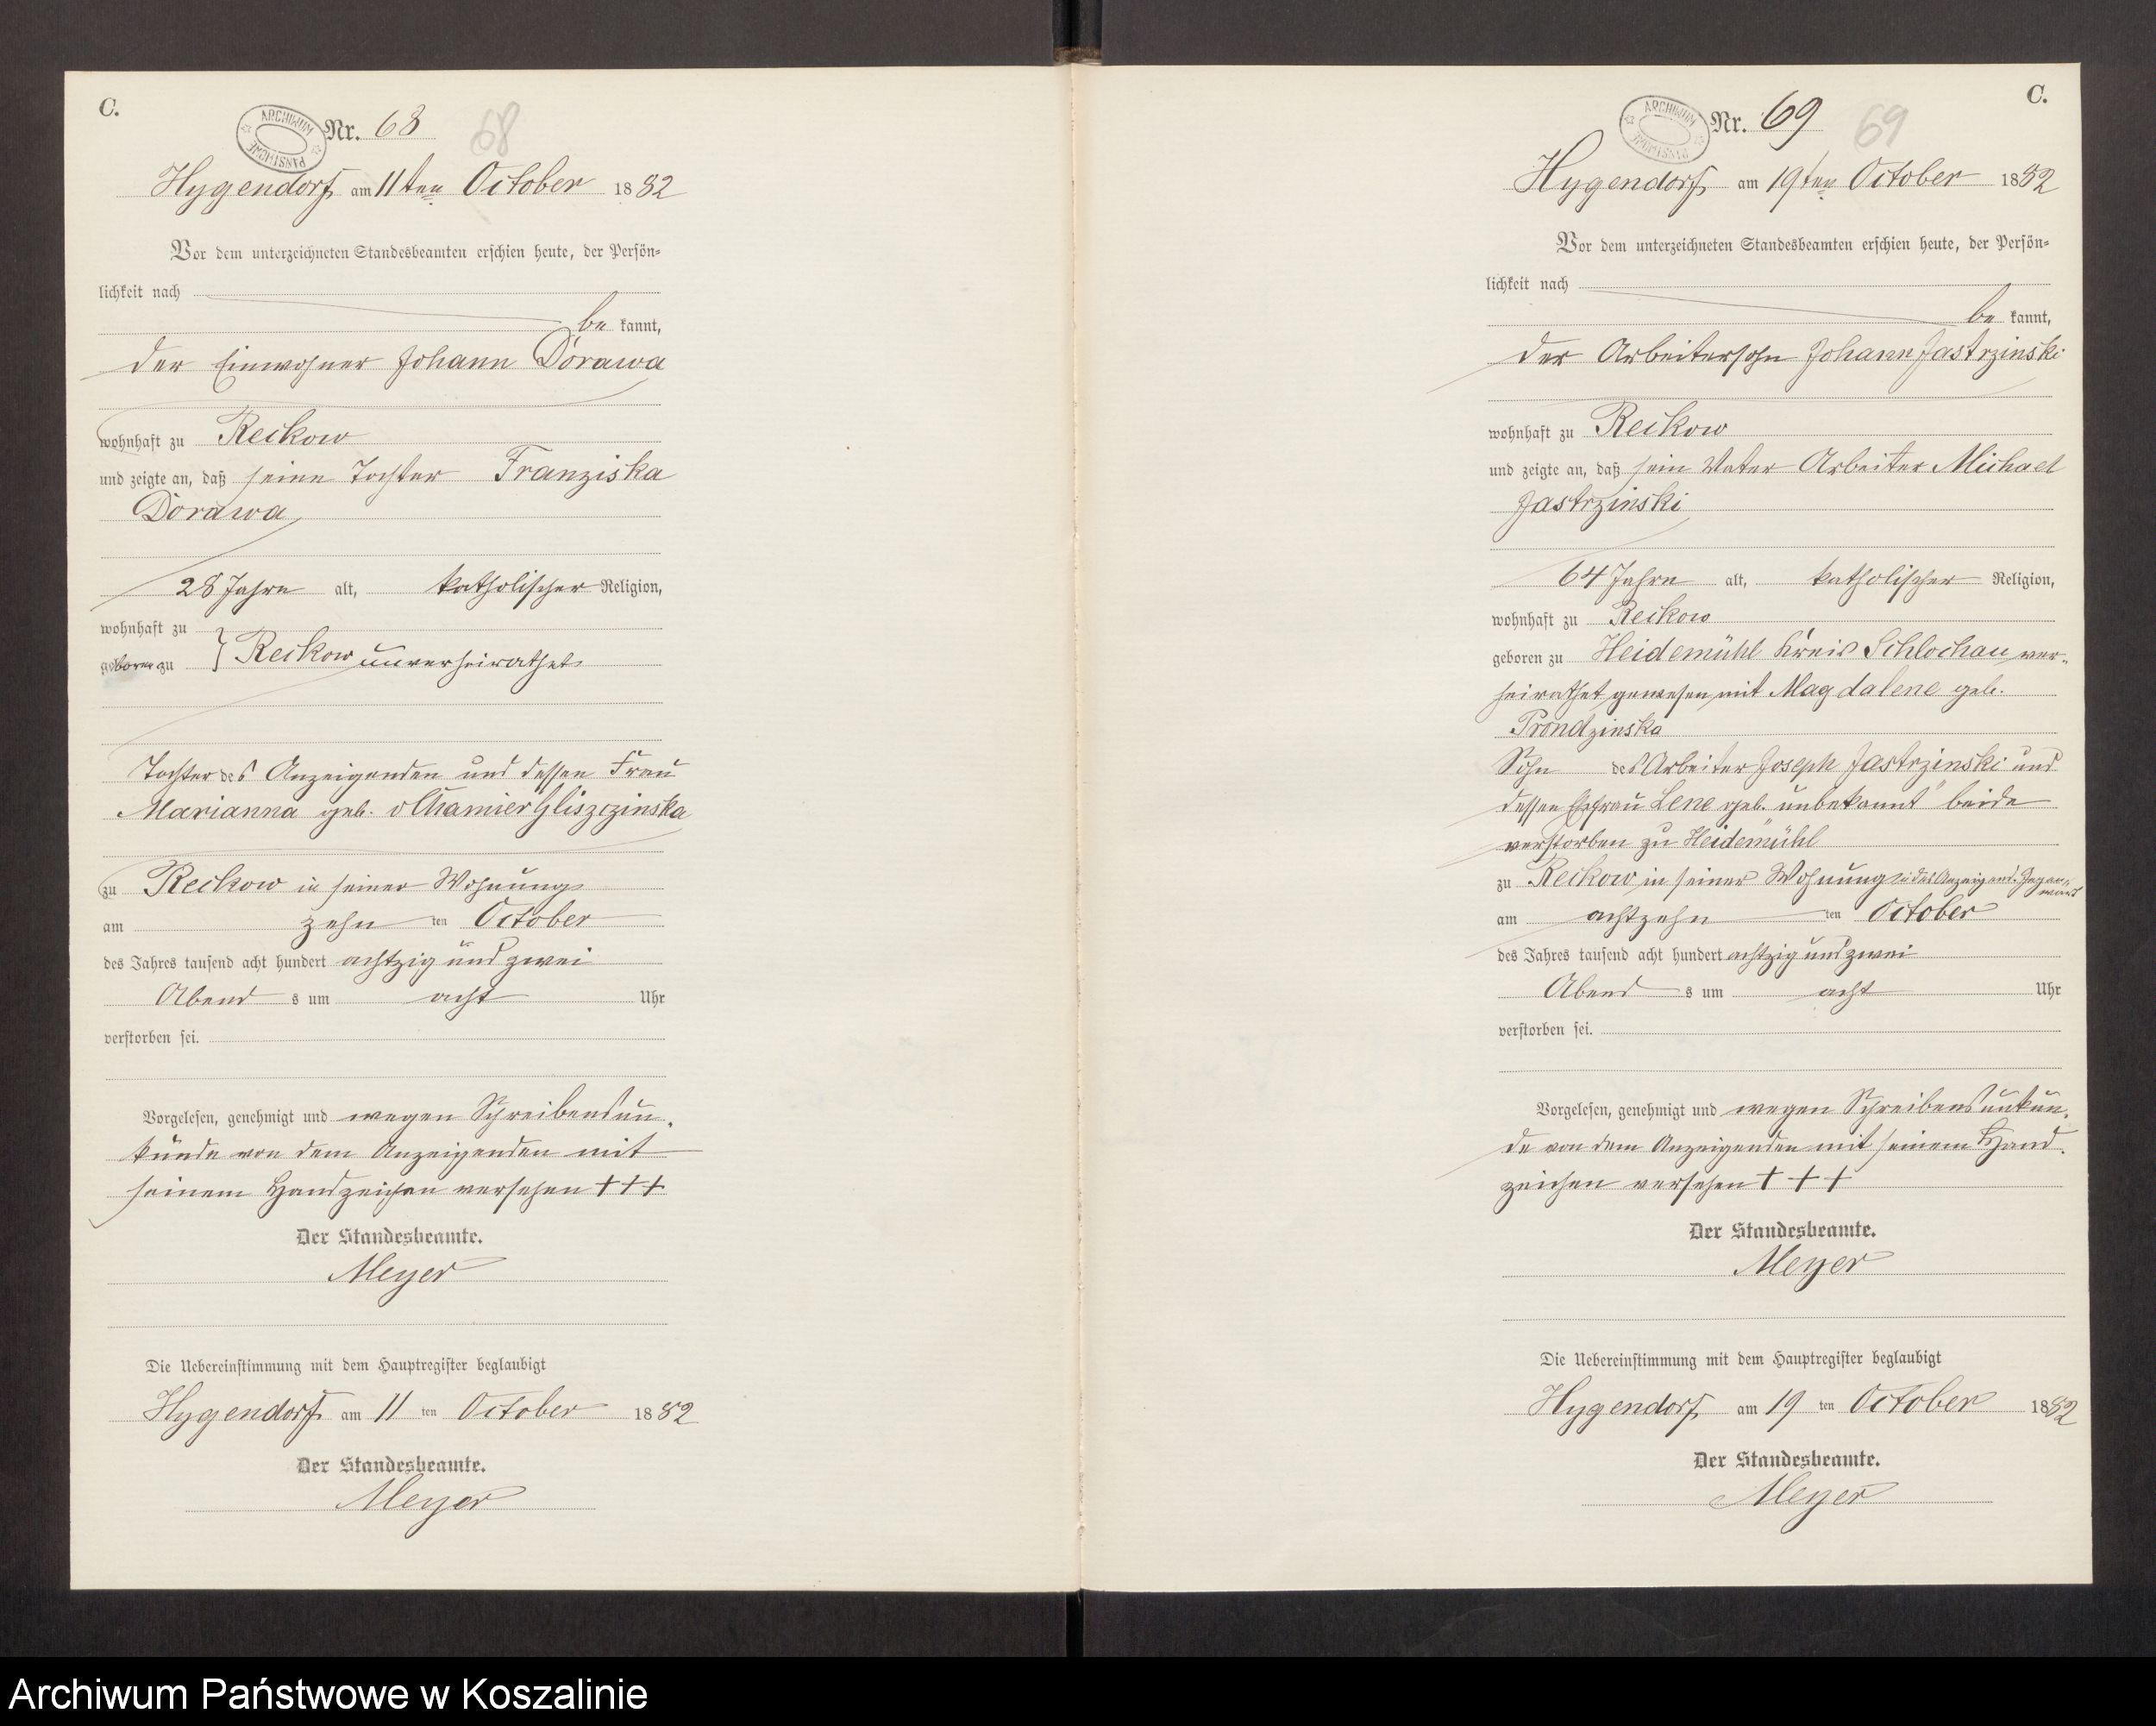 C.
ARCHIWUM PAŃSTWOWE
Nr. 68 68
Hygendorf am 11ten October 1882
Vor dem unterzeichneten Standesbeamten erschien heute, der Persön=
lichkeit nach
be kannt,
der Einwohner Johann Dorawa
wohnhaft zu Reckow
und zeigte an, daß seine Tochter Franziska
Dorawa
28 Jahre alt, katholischer Religion,
wohnhaft zu
geboren zu } Reckow unverheirathet
Tochter des Anzeigenden und dessen Frau
Marianna geb. v Chamier Gliszczinska
zu Reckow in seiner Wohnung
am zehn ten October
des Jahres tausend acht hundert achtzig und zwei
Abend s um acht Uhr
verstorben sei.
Vorgelesen, genehmigt und wegen Schreibensun-
kunde von dem Anzeigenden mit
seinem Handzeichen versehen +++
Der Standesbeamte.
Meyer
Die Uebereinstimmung mit dem Hauptregister beglaubigt
Hygendorf am 11 ten October 1882
Der Standesbeamte.
Meyer
C.
ARCHIWUM PAŃSTWOWE
Nr. 69 69
Hygendorf am 19ten October 1882
Vor dem unterzeichneten Standesbeamten erschien heute, der Persön=
lichkeit nach
be kannt,
der Arbeitersohn Johann Jastrzinski
wohnhaft zu Reckow
und zeigte an, daß sein Vater Arbeiter Michael
Jastrzinski
64 Jahre alt, katholischer Religion,
wohnhaft zu Reckow
geboren zu Heidemühl Kreis Schlochau ver-
heirathet gewesen mit Magdalene geb.
Prondzinska
Sohn des Arbeiter Joseph Jastrzinski und
dessen Ehefrau Lene geb. "unbekannt" beide
verstorben zu Heidemühl
zu Reckow in seiner Wohnung in des Anzeigend. Gegen-
wart
am achtzehn ten October
des Jahres tausend acht hundert achtzig und zwei
Abend s um acht Uhr
verstorben sei.
Vorgelesen, genehmigt und wegen Schreibensunkun-
de von dem Anzeigenden mit seinem Hand-
zeichen versehen +++
Der Standesbeamte.
Meyer
Die Uebereinstimmung mit dem Hauptregister beglaubigt
Hygendorf am 19 ten October 1882
Der Standesbeamte.
Meyer
Archiwum Państwowe w Koszalinie